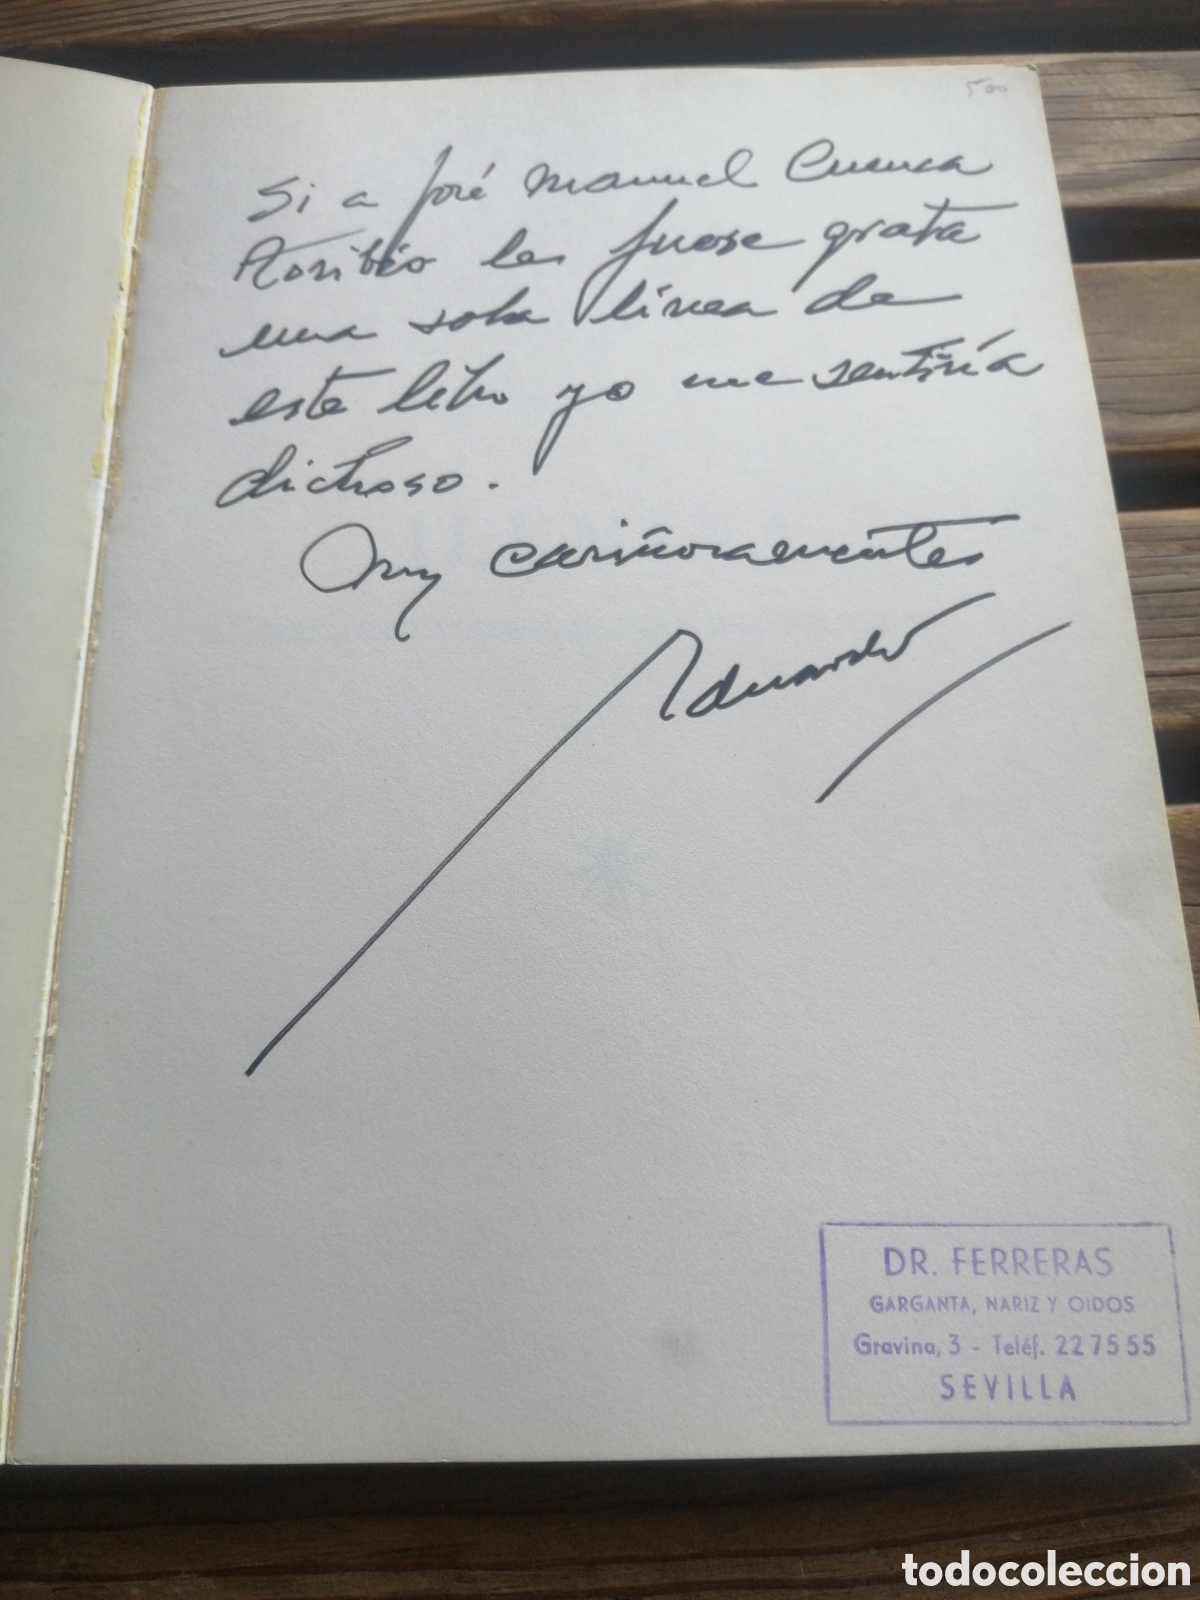 500
Si a José Manuel Cuenca
Toribio le fuese grata
una sola línea de
este libro yo me sentiría
dichoso.
Muy cariñosamente
Eduardo
DR. FERRERAS
GARGANTA, NARIZ Y OIDOS
Gravina, 3 - Teléf. 22 75 55
SEVILLA
todocoleccion